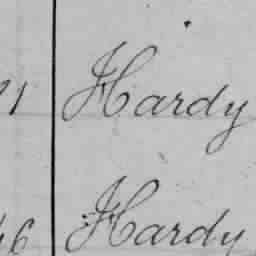 1 Hardy
6 Hardy